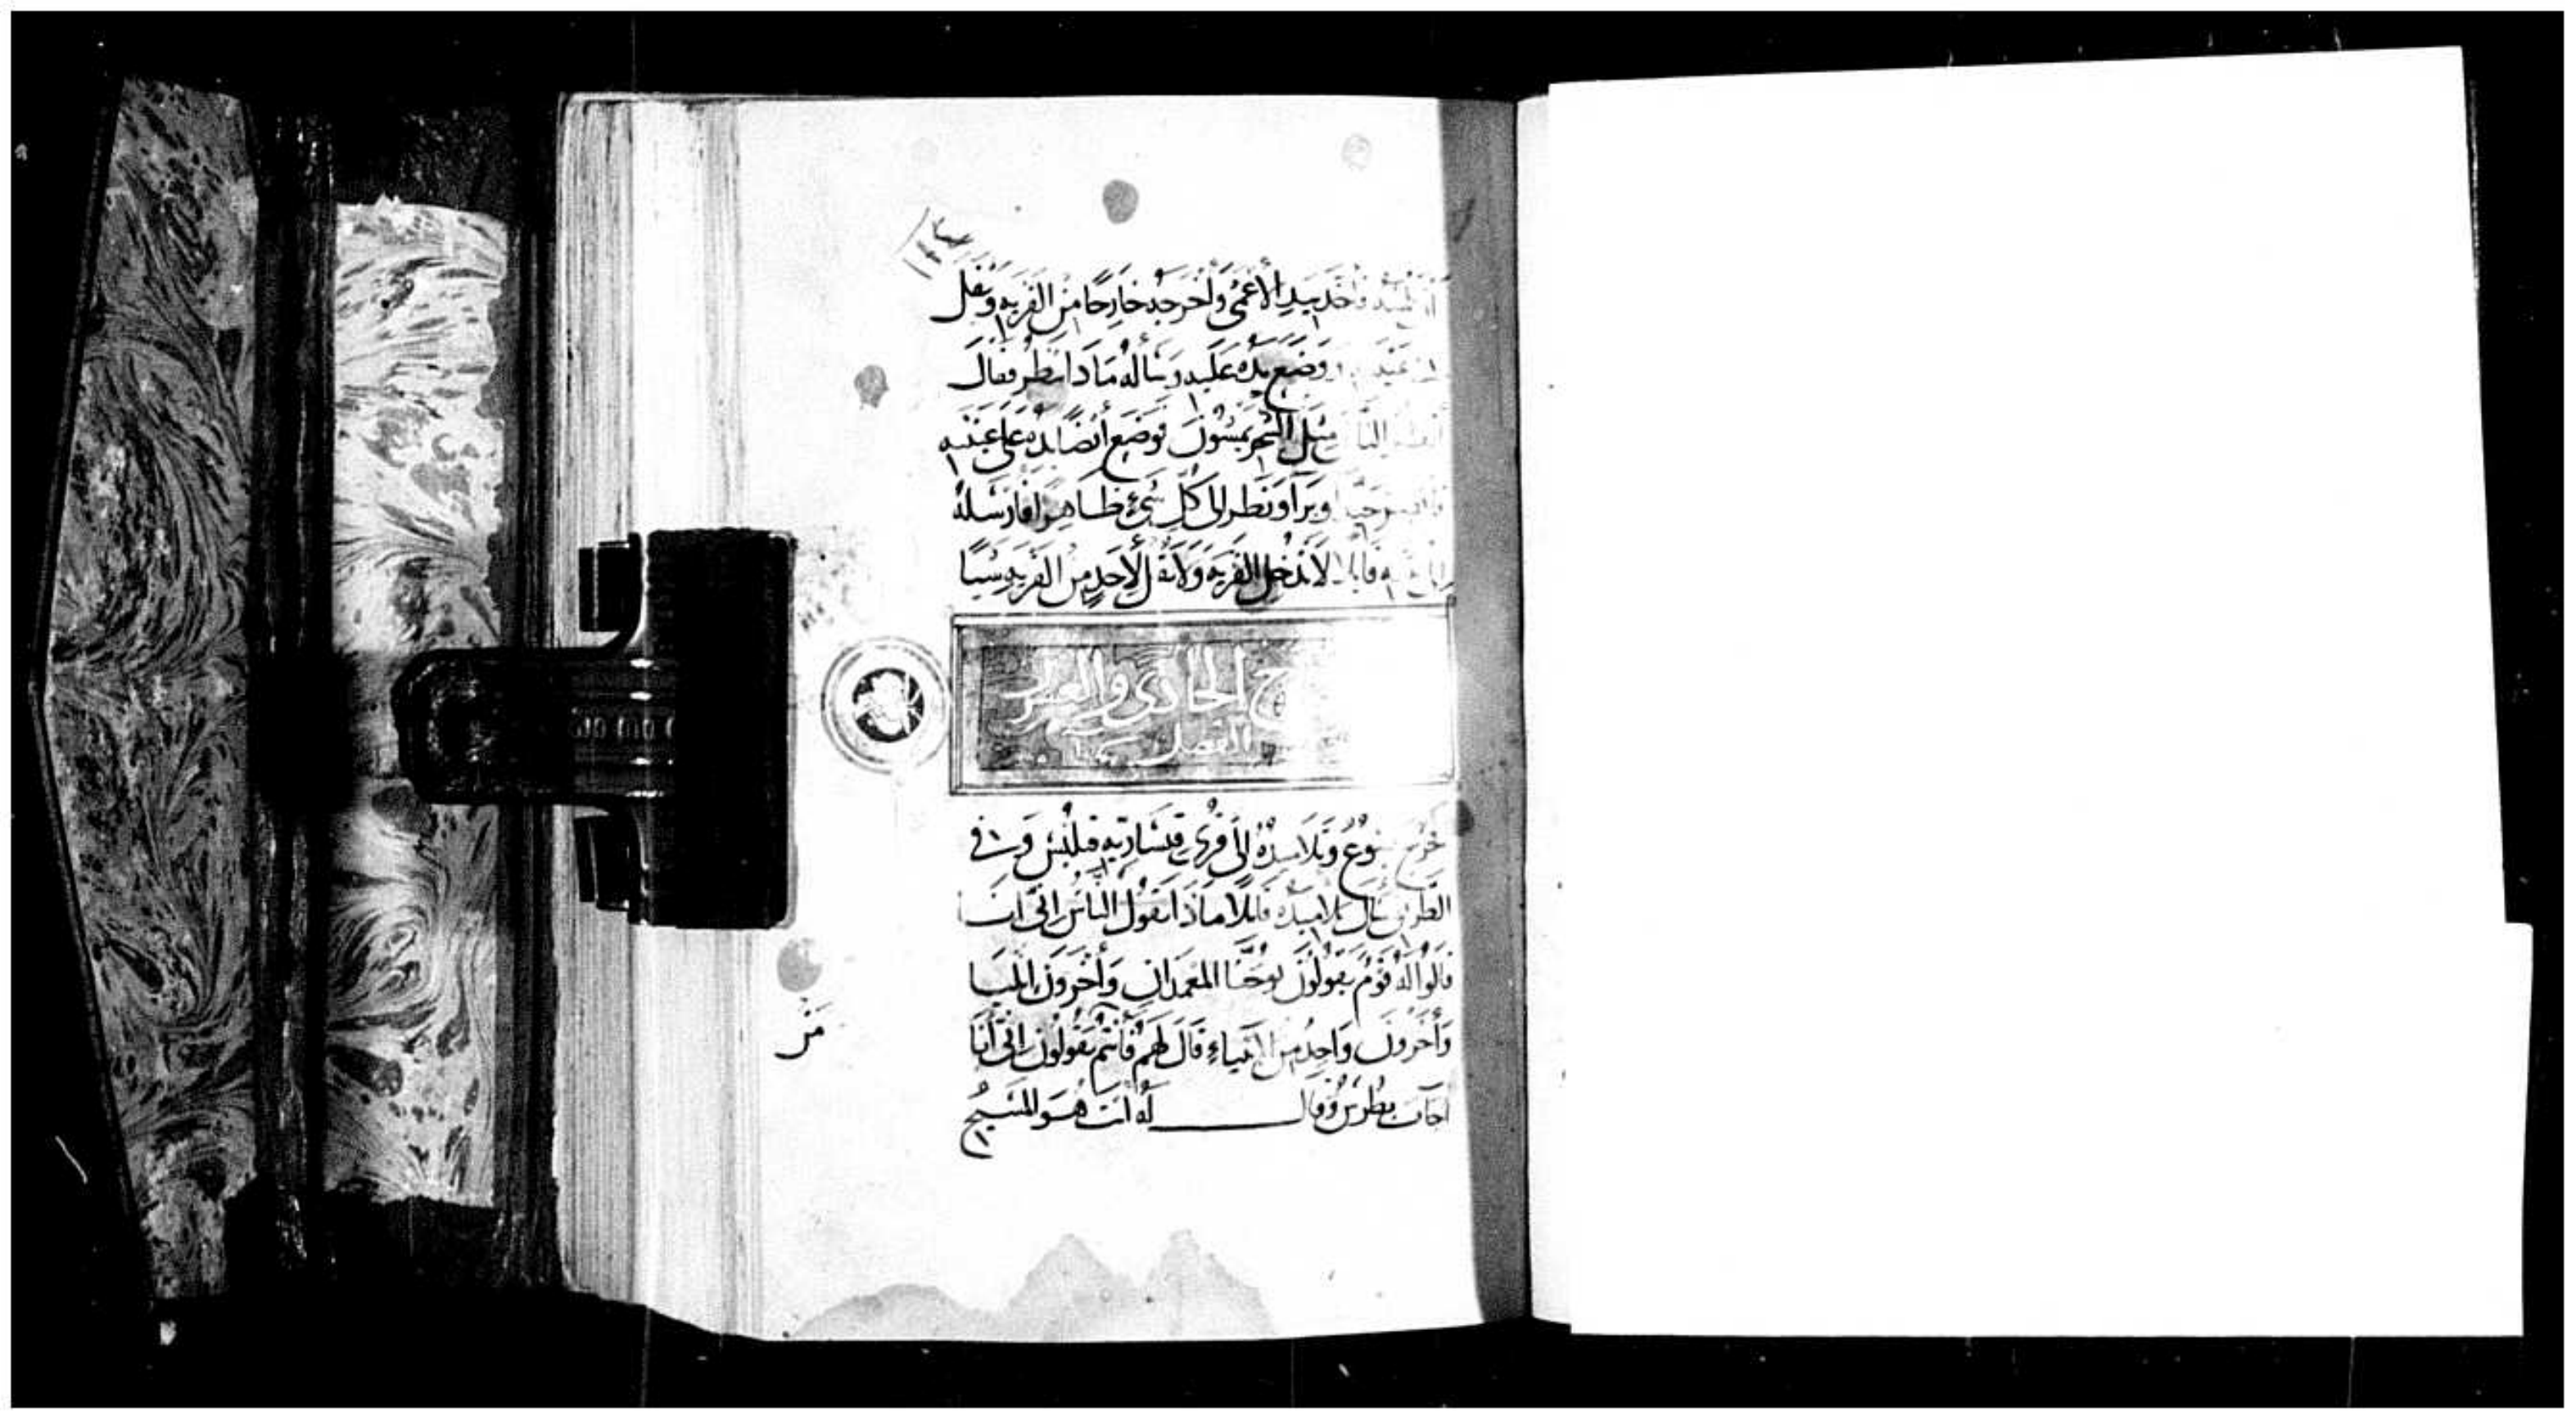 فاخذ بيد الأعمى وأخرجه خارجًا من القريه وتفل
وضع يده عليه وسأله ماذا تنظر فقال
مثل الشجر يمشون فوضع أيضًا يده على عينيه
وبرأ ونظر إلى كل شيء ظاهرًا فأرسله
قايلا لا تدخل القريه ولا تقل لأحد من القريه شيا
الحادي والعشرون
الفصل
خرج يسوع وتلاميذه إلى قرى قيساريه فيلبس وفي
الطريق سأل تلاميذه قايلا ماذا يقول الناس اني أنا
قالوا له قوم يقولون يوحنا المعمدان وأخرون إيليا
وأخرون واحد من الانبياء قال لهم فأنتم تقولون إني أنا
من
أجاب بطرس وقال له أنت هو المسيح